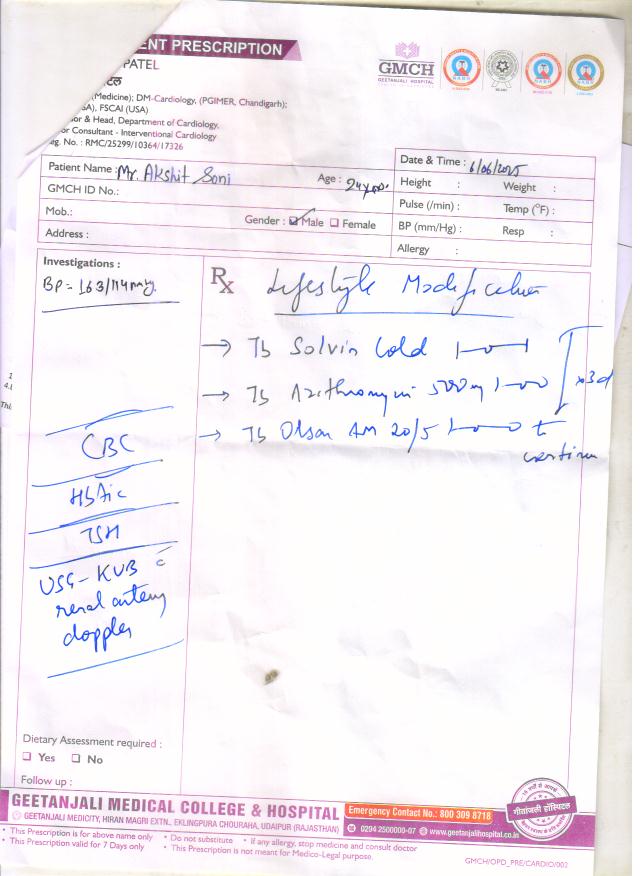 ENT PRESCRIPTION
PATEL
टेल
(Medicine); DM-Cardiology, (PGIMER, Chandigarh);
SA), FSCAI (USA)
or & Head, Department of Cardiology,
or Consultant - Interventional Cardiology
eg. No. : RMC/25299/10364/17326
GMCH
GEETANJALI HOSPITAL
Patient Name : Mr. Akshit Soni
Age : 24 yrs.
Date & Time : 6/06/2025
GMCH ID No.:
Height : Weight :
Mob.:
Gender : ☑ Male ☐ Female
Pulse (/min) : Temp (°F) :
Address :
BP (mm/Hg) : Resp :
Allergy :
Investigations :
BP = 163/114 mmHg.
Rx Lifestyle Modification
→ Tb Solvin Cold 1—0—1
→ Tb Azithromycin 500mg 1—0—0
x3d
→ Tb Olsar AM 20/5 1—0—0 t
continu
CBC
HbA1c
TSH
USG-KUB c
renal artery
doppler
Dietary Assessment required :
☐ Yes ☐ No
Follow up :
GEETANJALI MEDICAL COLLEGE & HOSPITAL
GEETANJALI MEDICITY, HIRAN MAGRI EXTN., EKLINGPURA CHOURAHA, UDAIPUR (RAJASTHAN)
Emergency Contact No.: 800 309 8718
0294 2500000-07 www.geetanjalihospital.co.in
गीतांजली हॉस्पिटल
• This Prescription is for above name only • Do not substitute • If any allergy, stop medicine and consult doctor
• This Prescription valid for 7 Days only • This Prescription is not meant for Medico-Legal purpose.
GMCH/OPD_PRE/CARDIO/002